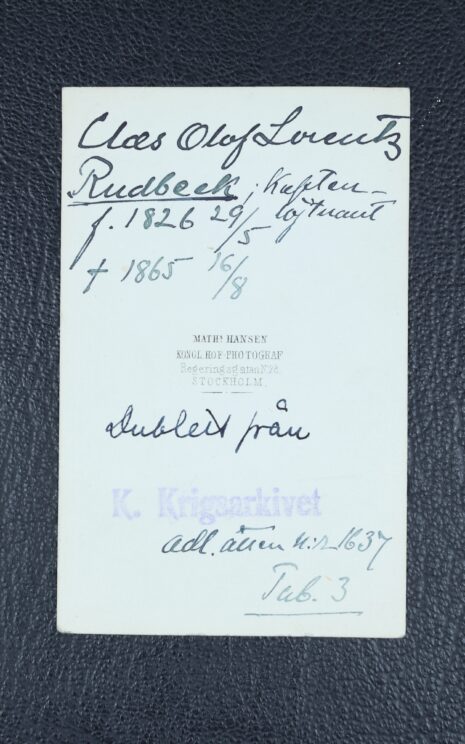 Claes Olof Lorentz
Rudbeck, Kapten-
löjtnant
f. 1826 29/5
† 1865 16/8
MATHS HANSEN
KONGL. HOF-PHOTOGRAF
Regeringsgatan No 28.
STOCKHOLM.
Dublett från
K. Krigsarkivet
adl. ätten n:r 1637
Tab. 3